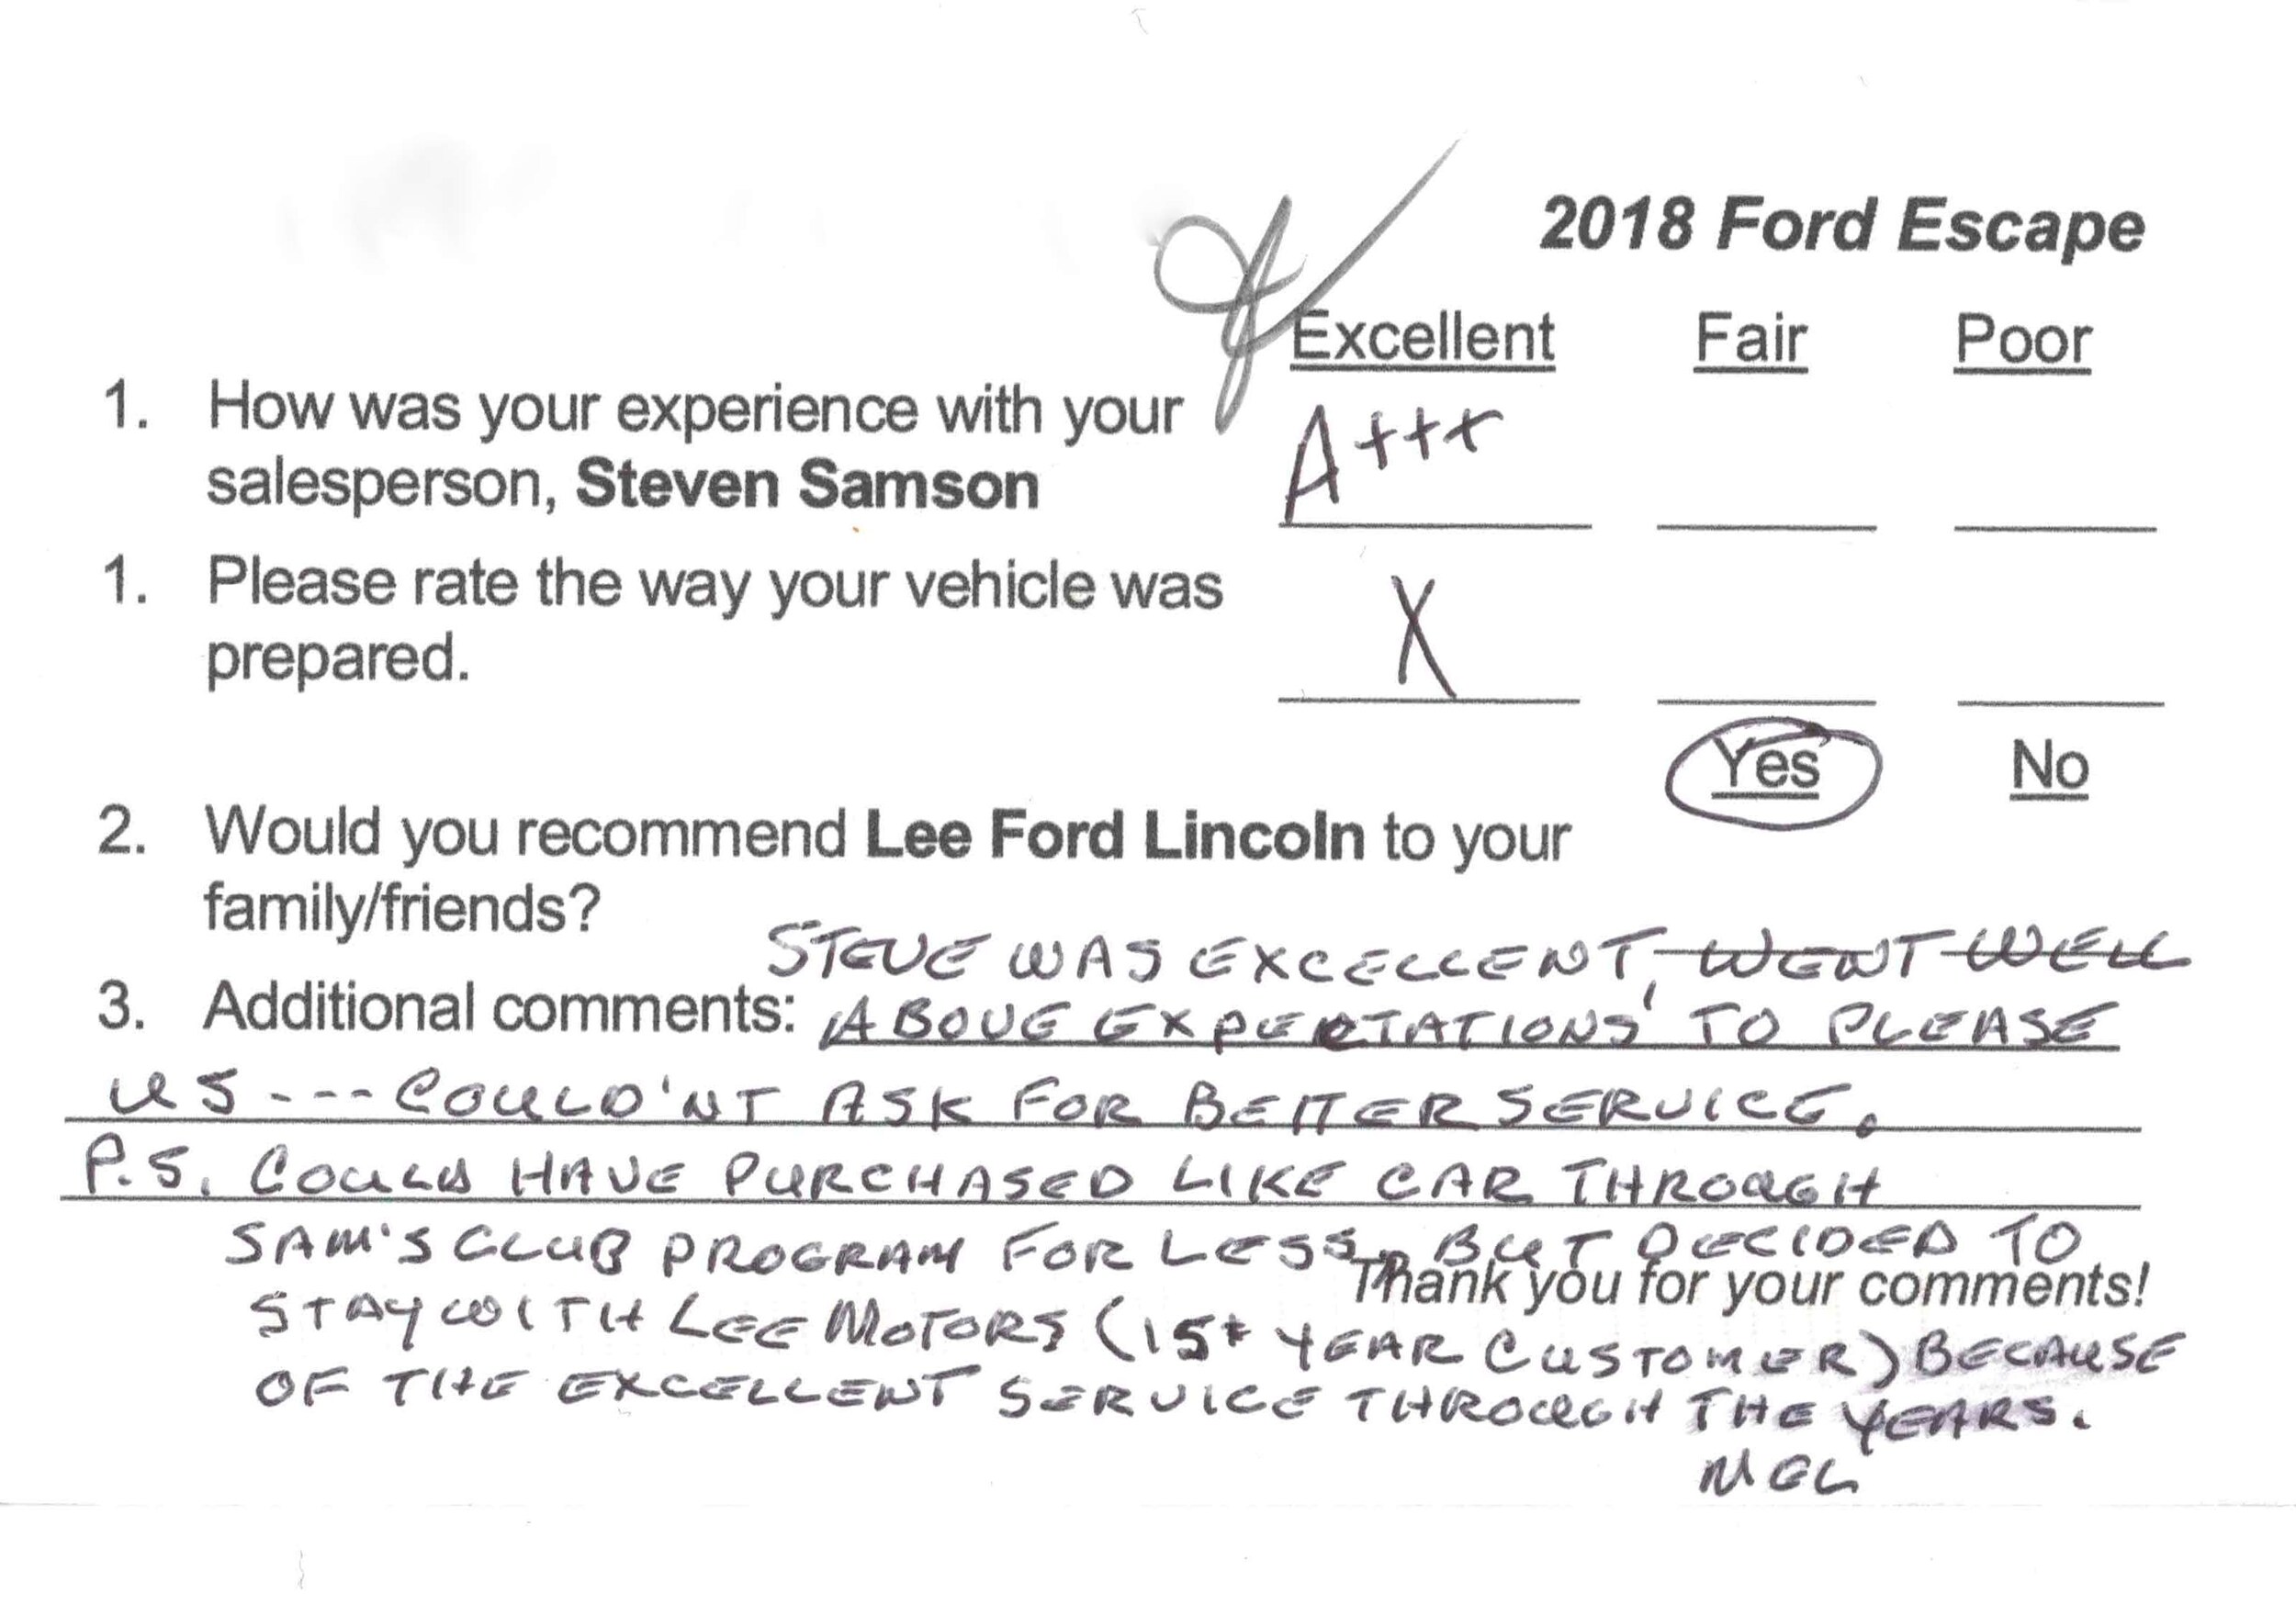 2018 Ford Escape
Excellent Fair Poor
1. How was your experience with your
salesperson, Steven Samson A+++
1. Please rate the way your vehicle was
prepared. X
Yes No
2. Would you recommend Lee Ford Lincoln to your
family/friends?
STEVE WAS EXCELLENT, WENT WELL
3. Additional comments: ABOVE EXPECTATIONS TO PLEASE
US ---- COULD'NT ASK FOR BETTER SERVICE.
P.S. COULD HAVE PURCHASED LIKE CAR THROUGH
SAM'S CLUB PROGRAM FOR LESS, BUT DECIDED TO
Thank you for your comments!
STAY WITH LEE MOTORS (15+ YEAR CUSTOMER) BECAUSE
OF THE EXCELLENT SERVICE THROUGH THE YEARS.
MEL